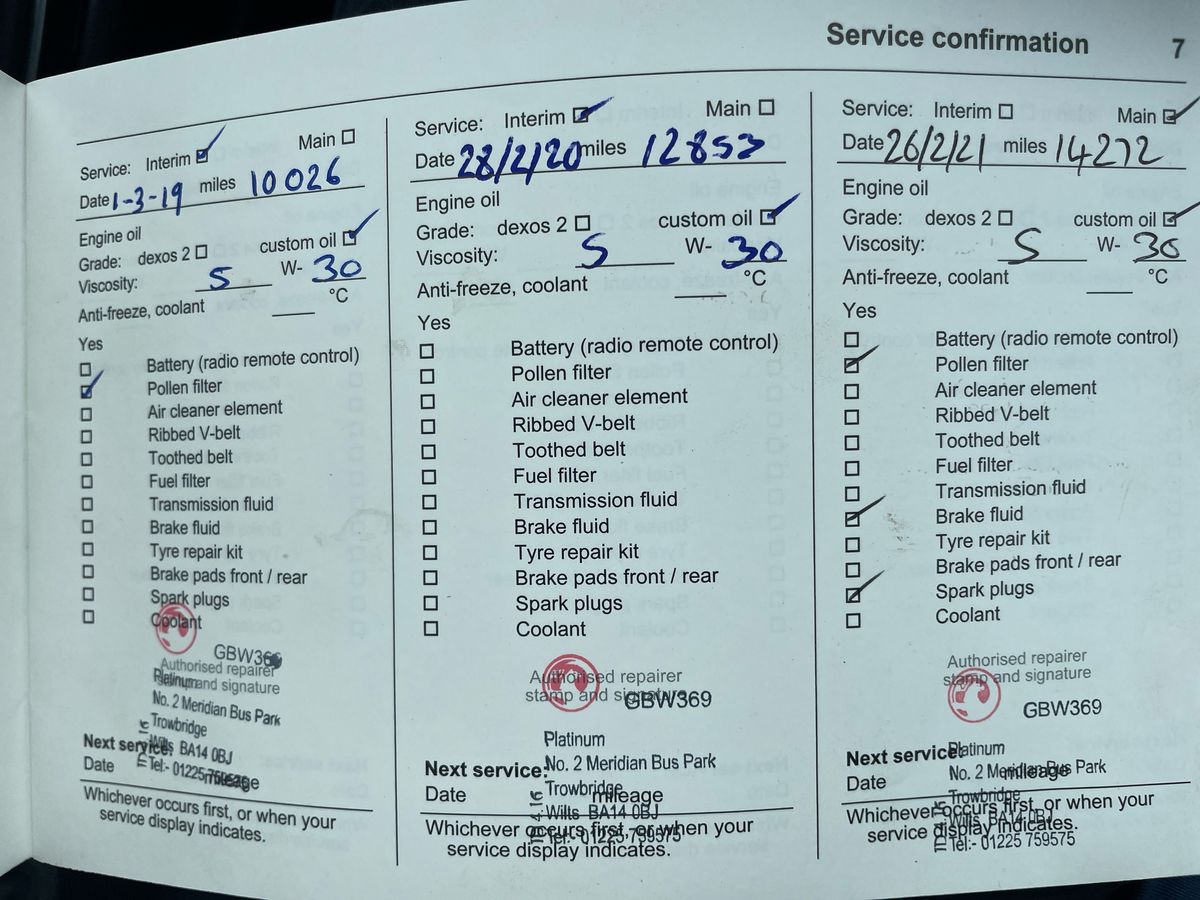 Service confirmation 7
Service: Interim ☑ Main ☐
Date 1-3-19 miles 10026
Engine oil
Grade: dexos 2 ☐ custom oil ☑
Viscosity: 5 W- 30
Anti-freeze, coolant ____ °C
Yes
☐ Battery (radio remote control)
☑ Pollen filter
☐ Air cleaner element
☐ Ribbed V-belt
☐ Toothed belt
☐ Fuel filter
☐ Transmission fluid
☐ Brake fluid
☐ Tyre repair kit
☐ Brake pads front / rear
☐ Spark plugs
☐ Coolant
GBW369
Authorised repairer
stamp and signature
Platinum
No. 2 Meridian Bus Park
Trowbridge
Wilts BA14 0BJ
Tel:- 01225 759575
Next service:
Date mileage
Whichever occurs first, or when your
service display indicates.
Service: Interim ☑ Main ☐
Date 28/2/20 miles 12853
Engine oil
Grade: dexos 2 ☐ custom oil ☑
Viscosity: 5 W- 30
Anti-freeze, coolant ____ °C
Yes
☐ Battery (radio remote control)
☐ Pollen filter
☐ Air cleaner element
☐ Ribbed V-belt
☐ Toothed belt
☐ Fuel filter
☐ Transmission fluid
☐ Brake fluid
☐ Tyre repair kit
☐ Brake pads front / rear
☐ Spark plugs
☐ Coolant
Authorised repairer
stamp and signature
GBW369
Platinum
No. 2 Meridian Bus Park
Trowbridge
Wilts BA14 0BJ
Tel:- 01225 759575
Next service:
Date mileage
Whichever occurs first, or when your
service display indicates.
Service: Interim ☐ Main ☑
Date 26/2/21 miles 14272
Engine oil
Grade: dexos 2 ☐ custom oil ☑
Viscosity: 5 W- 30
Anti-freeze, coolant ____ °C
Yes
☐ Battery (radio remote control)
☑ Pollen filter
☐ Air cleaner element
☐ Ribbed V-belt
☐ Toothed belt
☐ Fuel filter
☐ Transmission fluid
☑ Brake fluid
☐ Tyre repair kit
☐ Brake pads front / rear
☑ Spark plugs
☐ Coolant
Authorised repairer
stamp and signature
GBW369
Platinum
No. 2 Meridian Bus Park
Trowbridge
Wilts BA14 0BJ
Tel:- 01225 759575
Next service:
Date mileage
Whichever occurs first, or when your
service display indicates.